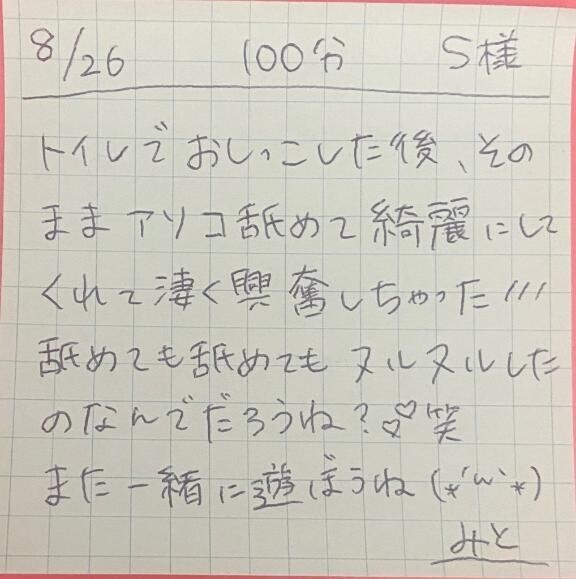 8/26 100分 S様
トイレでおしっこした後、その
ままアソコ舐めて綺麗にして
くれて凄く興奮しちゃった///
舐めても舐めてもヌルヌルした
のなんでだろうね?♡♡笑
また一緒に遊ぼうね(*'ω'*)
みと